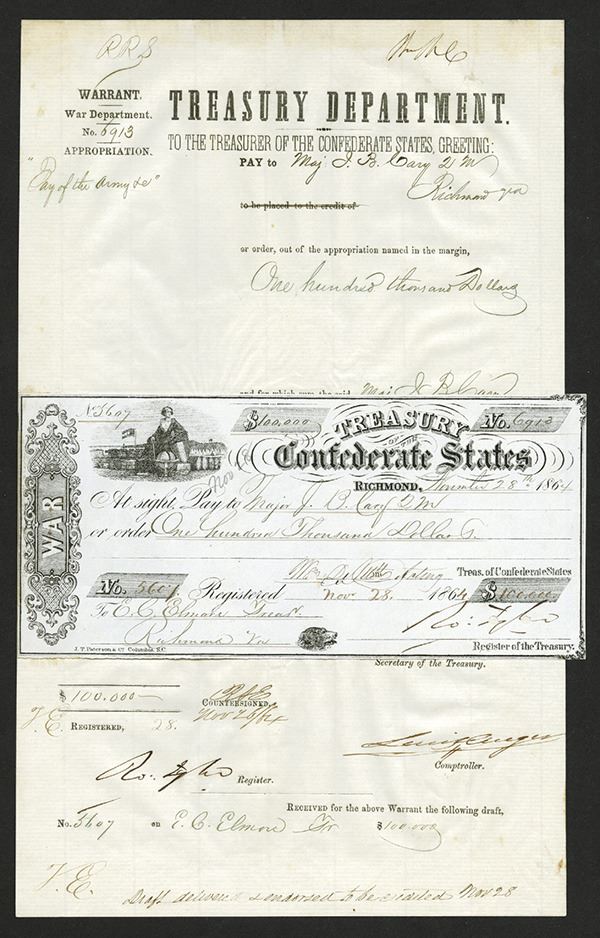 RRS
WARRANT.
War Department.
No. 6913
APPROPRIATION.
"Pay of the Army &c"
TREASURY DEPARTMENT.
TO THE TREASURER OF THE CONFEDERATE STATES, GREETING:
PAY to Maj J. B. Cary Q M
Richmond
to be placed to the credit of
or order, out of the appropriation named in the margin,
One hundred thousand Dollars
and for which sum the said Maj J B Cary
No 5607
$100,000
TREASURY
OF THE
No. 6913
Confederate States
RICHMOND, November 28th 1864
WAR
At sight, Pay to Major J. B. Cary Q M
or order One hundred Thousand Dollars
Treas. of Confederate States
No. 5607 Registered Nov. 28. 1864 $100.000
To E. C. Elmore Treas
Richmond Va
Ro: Tyler
Register of the Treasury.
J. T. Paterson & Co Columbia, S.C
Secretary of the Treasury.
$100.000
COUNTERSIGNED,
Nov 28/64
T. E. REGISTERED, 28.
Comptroller.
Ro: Tyler
Register.
RECEIVED for the above Warrant the following draft,
No. 5607 on E. C. Elmore Tr $100,000
T. E.
Draft delivered & endorsed to be credited Nov 28